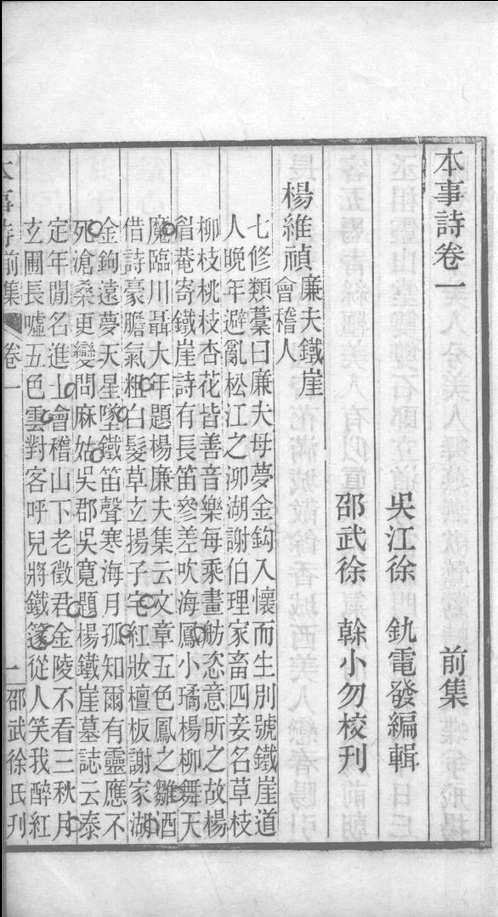 本事詩卷一
前集
吳江徐 釚電發編輯
邵武徐 榦小勿校刊
楊維禎廉夫鐵崖
會稽人
七修類藁曰廉夫母夢金鈎入懷而生別號鐵崖道
人晚年避亂松江之泖湖謝伯理家畜四妾名草枝
柳枝桃枝杏花皆善音樂每乘畫舫恣意所之故楊
眉菴寄鐵崖詩有長笛參差吹海鳳小璚楊柳舞天
魔臨川聶大年題楊廉夫集云文章五色鳳之雛酒
借詩豪膽氣粗白髮草玄揚子宅紅妝檀板謝家湖
金鉤遠夢天星墜鐵笛聲寒海月孤知爾有靈應不
死滄桑更變問麻姑吳郡吳寬題楊鐵崖墓誌云泰
定年間名進士會稽山下老徵君金陵不看三秋月
玄圃長噓五色雲對客呼兒將鐵篴從人笑我醉紅
本事詩前集 卷一
一 邵武徐氏刊